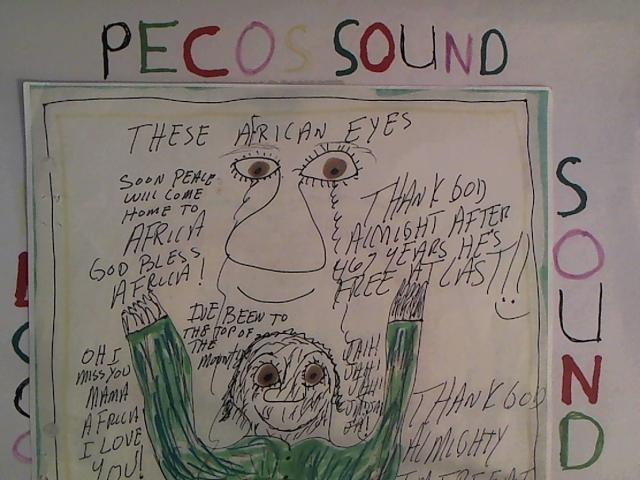 PECOS SOUND
THESE AFRICAN EYES
SOON PEACE
WILL COME
HOME TO
AFRICA
GOD BLESS
AFRICA!
THANK GOD
ALMIGHT AFTER
467 YEARS HE'S
FREE AT LAST!!!
I'VE BEEN TO
THE TOP OF
THE
OH I
MISS YOU
MAMA
AFRICA
I LOVE
YOU!
THANK GOD
ALMIGHTY
SOUND